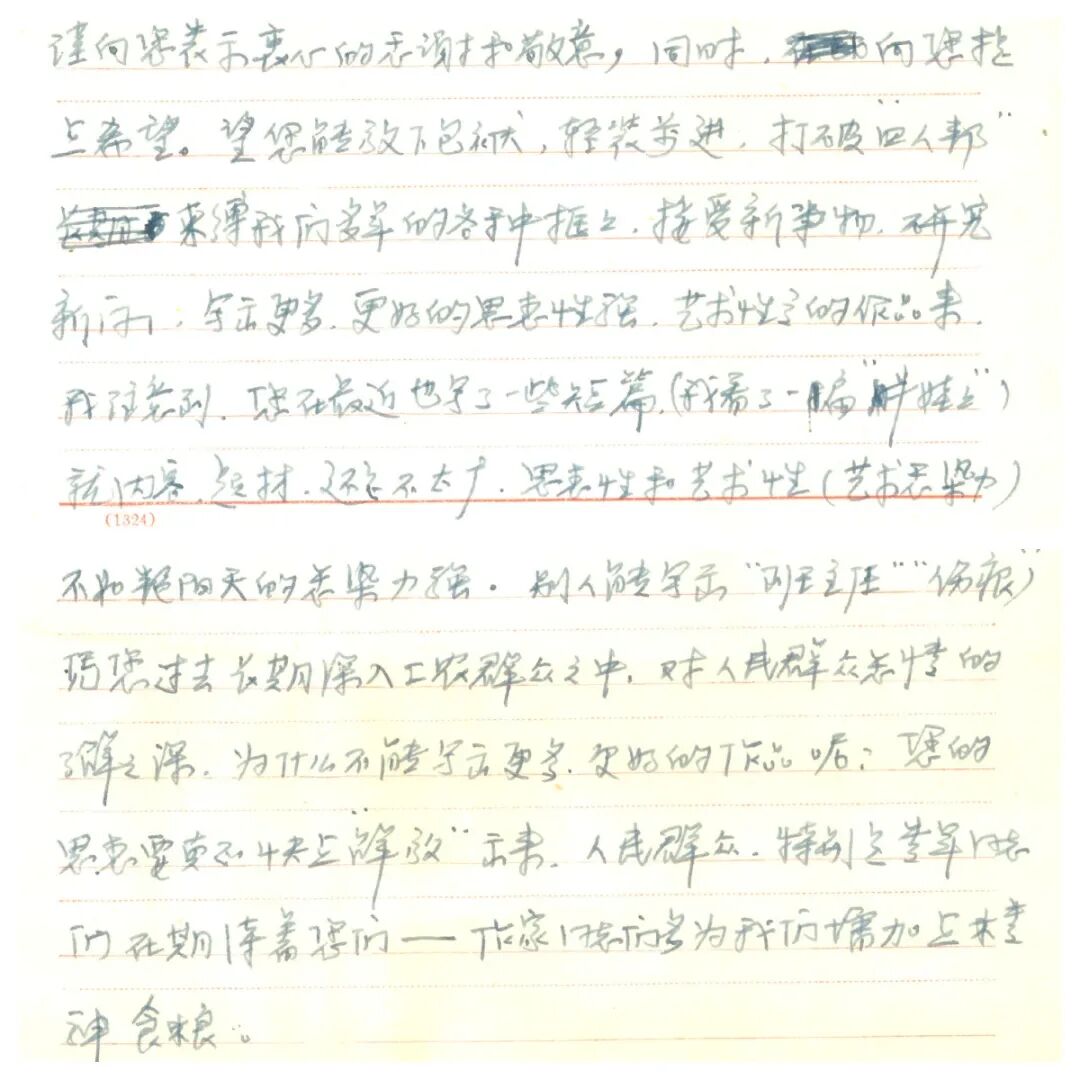 谨向您表示衷心的感谢和敬意，同时，向您提
点希望。望您能放下包袱，轻装前进，打破“四人邦”
束缚我们多年的各种框框，接受新事物，研究
新问，写出更多、更好的思想性强、艺术性高的作品来，
我注意到，您在最近也写了一些短篇，(我看了一篇“胖娃娃”)
就内容、题材，还是不太广，思想性和艺术性(艺术感染力)
(1324)
不如艳阳天的感染力强。别人能写出“班主任”“伤痕”
凭您过去长期深入工农群众之中，对人民群众感情的
了解之深，为什么不能写出更多、更好的作品呢？您的
思想要更加快点“解放”出来，人民群众，特别是青年同志
们在期待着您们——作家同志们多为我们增加点精
神食粮。